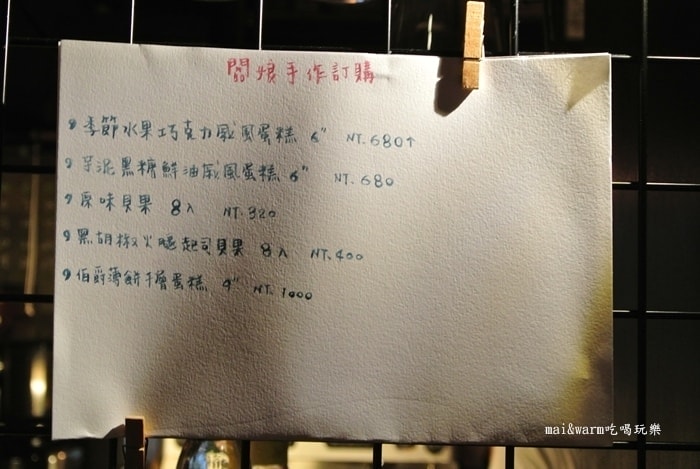 闆娘手作訂購
季節水果巧克力戚風蛋糕 6" NT.680↑
芋泥黑糖鮮油戚風蛋糕 6" NT.680
原味貝果 8入 NT.320
黑胡椒火腿起司貝果 8入 NT.400
伯爵薄餅千層蛋糕 9" NT.1000
mai&warm吃喝玩樂